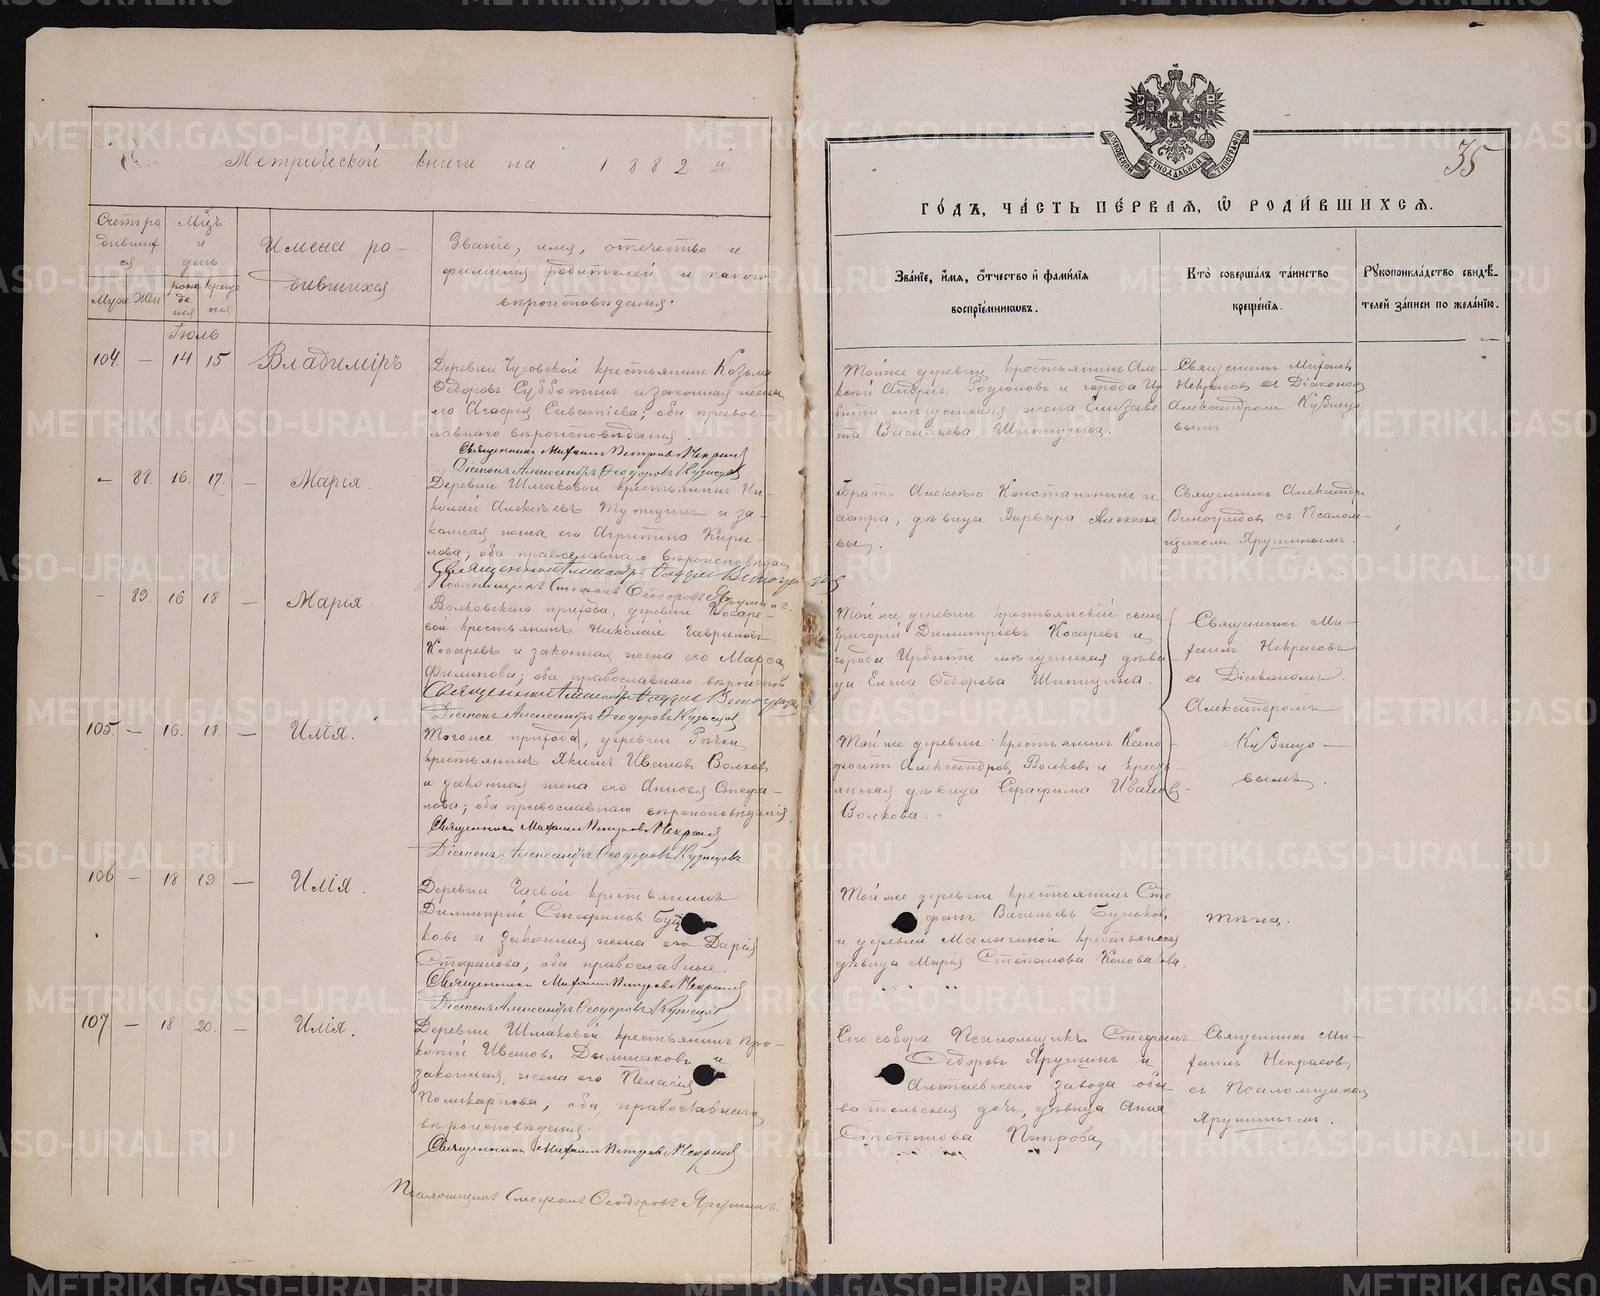 Метрической книги на 1882 й
Счетъ ро
дивших
ся
Муж Жен
Мцъ
и
день
рожде
нія
креще
нія
Имена ро-
дившихся.
Званіе, имя, отчество и
фамилія родителей и какого
вѣроисповѣданія.
Іюль
104. — 14 15. Владиміръ
Деревни Чусовской крестьянинъ Козьма
Ѳедоровъ Субботинъ и законная жена
его Агафія Саватіева; оба правос-
лавнаго вѣроисповѣданія.
Священникъ Михаилъ Петровъ Некрасовъ
Діаконъ Александръ Ѳеодоровъ Кузнецовъ
— 88. 16. 17. — Марія.
Деревни Шмаковой крестьянинъ Ни-
колай Алексѣевъ и за-
конная жена его Агрипина Кири-
лова; оба православнаго вѣроисповѣданія
Священникъ Александръ Виноградовъ
Псаломщикъ Стефанъ Ѳеодоровъ Ярушинъ.
— 89. 16 18. — Марія.
Волковскаго прихода, деревни Косаре-
вой крестьянинъ Николай Гавриловъ
Косаревъ и законная жена его Марѳа
Филипова; оба православнаго вѣроисповѣд
Священникъ Александръ Виноградовъ
Діаконъ Александръ Ѳеодоровъ Кузнецовъ
105. — 16. 18. — Илія.
Тогоже прихода, деревни Рѣчки
крестьянинъ Якимъ Ивановъ Волковъ
и законная жена его Анисья Стефа-
нова; оба православнаго вѣроисповѣданія.
Священникъ Михаилъ Петровъ Некрасовъ
Діаконъ Александръ Ѳеодоровъ Кузнецовъ
106 — 18 19 — Илія.
Деревни Гаевой крестьянинъ
Димитрій Стефановъ
ковъ и законная жена его Дарія
Стефанова; оба православные.
Священникъ Михаилъ Петровъ Некрасовъ
Діаконъ Александръ Ѳеодоровъ Кузнецовъ
107. — 18 20. — Илія.
Деревни Шмаковой крестьянинъ Про-
копій Ивановъ Дымшаковъ и
законная жена его Пелагія
Поликарпова; оба православнаго
вѣроисповѣданія.
Священникъ Михаилъ Петровъ Некрасовъ
Псаломщикъ Стефанъ Ѳеодоровъ Ярушинъ.
МОСКОВСКОЙ СѴНОДАЛЬНОЙ ТИПОГРАФІИ
35
ГО́ДЪ, ЧА́СТЬ ПЕ́РВАЯ, Ѡ҆ РОДИ́ВШИХСЯ.
Зва́нїе, и҆́мя, ѻ҆́тчество и҆ фами́лїя
воспрїе́мниковъ.
Кто̀ соверша́лъ та́инство
креще́нїя.
Рꙋкоприкла́дство свидѣ́-
телей за́писи по жела́нїю.
Той же деревни крестьянинъ Але-
ксѣй Андреевъ Родіоновъ и города Ир
битъ мѣщанская жена Елизаве
та Васильева Шипицина.
Священникъ Михаилъ
Некрасовъ съ Діакономъ
Александромъ Кузнецо
вымъ.
Братъ Алексѣю Константинъ и
сестра, дѣвица Варвара Алексѣе
вы.
Священникъ Александръ
Виноградовъ съ Псалом-
щикомъ Ярушинымъ.
Той же деревни крестьянскій сынъ
Григорій Димитріевъ Косаревъ и
города Ирбити мѣщанская дѣви
ца Елена Ѳедорова Шипицина.
Священникъ Ми-
хаилъ Некрасовъ
съ Діакономъ
Александромъ
Кузнецо—
вымъ.
Той же деревни крестьянинъ Ксено-
фонтъ Александровъ Волковъ и кресть-
янская дѣвица Серафима Иванова
Волкова.
Той же деревни крестьянинъ Сте
фанъ Васильевъ Буньковъ
и деревни Малыгиной крестьянская
дѣвица Марія Степанова Коновалова.
тѣже.
Сего собора Псаломщикъ Стефанъ
Ѳедоровъ Ярушинъ и
Алапаевскаго завода обы
вательская дочь, дѣвица Анна
Степанова Петрова.
Священникъ Ми-
хаилъ Некрасовъ
съ Псаломщикомъ
Ярушинымъ.
METRIKI.GASO-URAL.RU